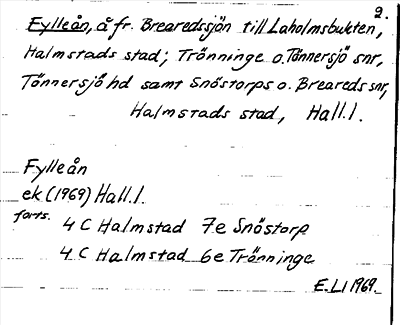 2.
Fylleån, å fr. Brearedssjön till Laholmsbukten,
Halmstads stad; Trönninge o. Tönnersjö snr,
Tönnersjö hd samt Snöstorps o. Breareds snr,
Halmstads stad, Hall.l.
Fylleån
ek (1969) Hall.l.
forts.
4 C Halmstad 7e Snöstorp
4 C Halmstad 6e Trönninge
E.LI 1969.